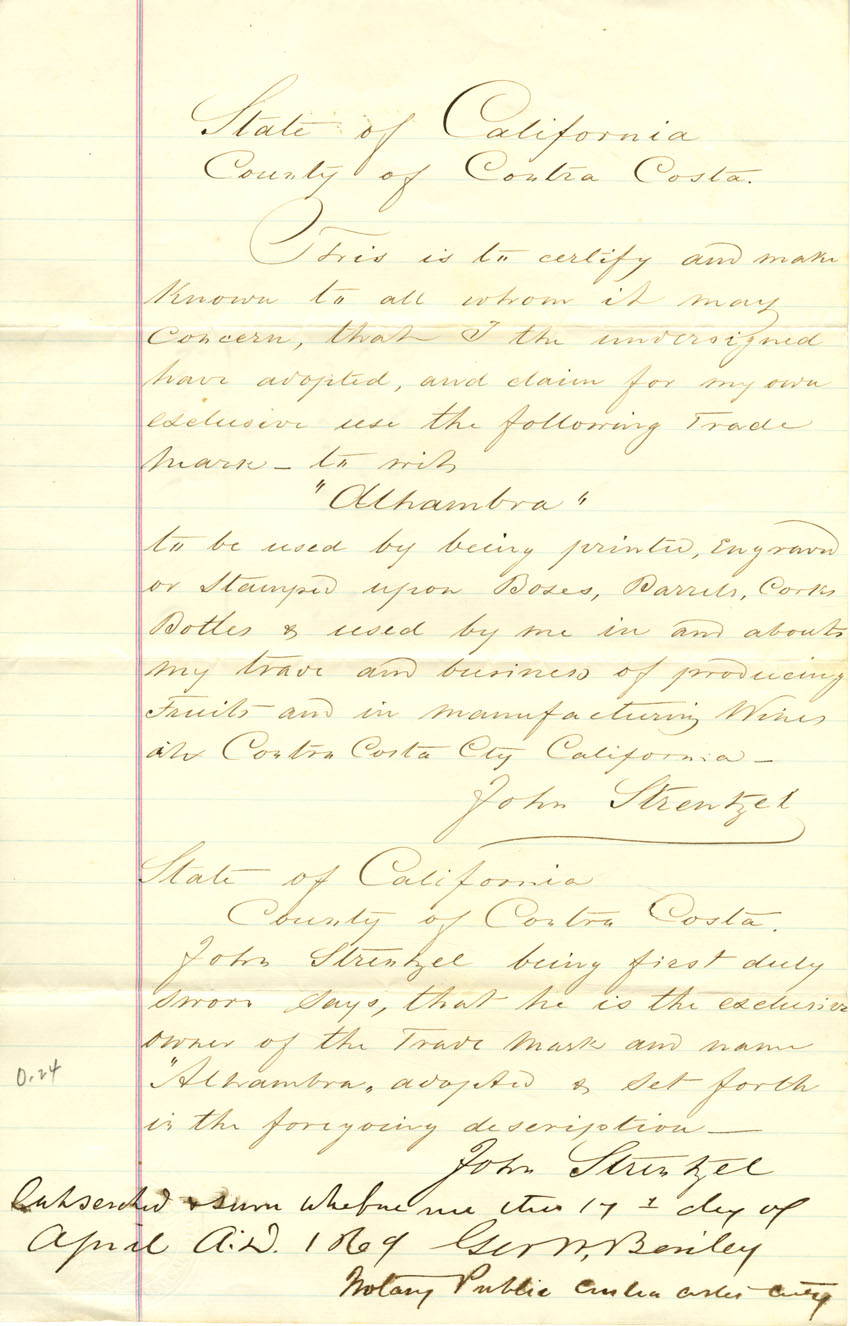 State of California
County of Contra Costa.
This is to certify and make
Known to all whom it may
Concern, that I the undersigned
have adopted, and claim for my own
exclusive use the following Trade
Mark – to wit
"Alhambra"
to be used by being printed, Engraved
or Stamped upon Boxes, Barrels, Corks
Bottles & used by me in and about
my trade and business of producing
Fruits and in manufacturing Wines
in Contra Costa Cty California –
John Strentzel
State of California
County of Contra Costa.
John Strentzel being first duly
sworn says, that he is the exclusive
owner of the Trade Mark and name
"Alhambra" adopted & set forth
in the foregoing description –
0.24
John Strentzel
Subscribed & sworn before me this 17 day of
April A.D. 1869 Geo W. Bailey
Notary Public Contra Costa County